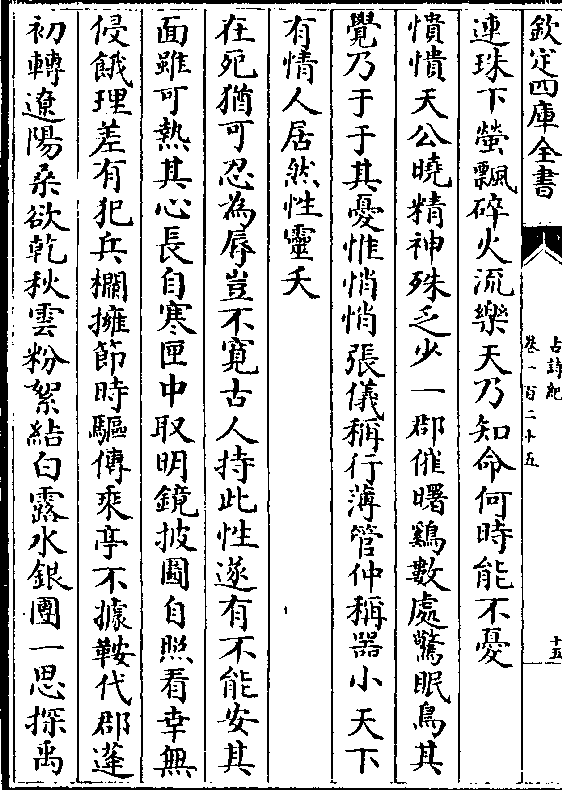 欽定四庫全書
古詩紀
卷一百二十五
十五
連珠下螢飄碎火流樂天乃知命何時能不憂
憒憒天公曉精神殊乏少一郡催曙鷄數處驚眠鳥其
覺乃于于其憂惟悄悄張儀稱行薄管仲稱器小天下
有情人居然性靈夭
在死猶可忍為辱豈不寛古人持此性遂有不能安其
面雖可熱其心長自寒匣中取明鏡披圖自照看幸無
侵餓理差有犯兵欄擁節時驅傳乘亭不據鞍代郡蓬
初轉遼陽桑欲乾秋雲粉絮結白露水銀團一思探禹